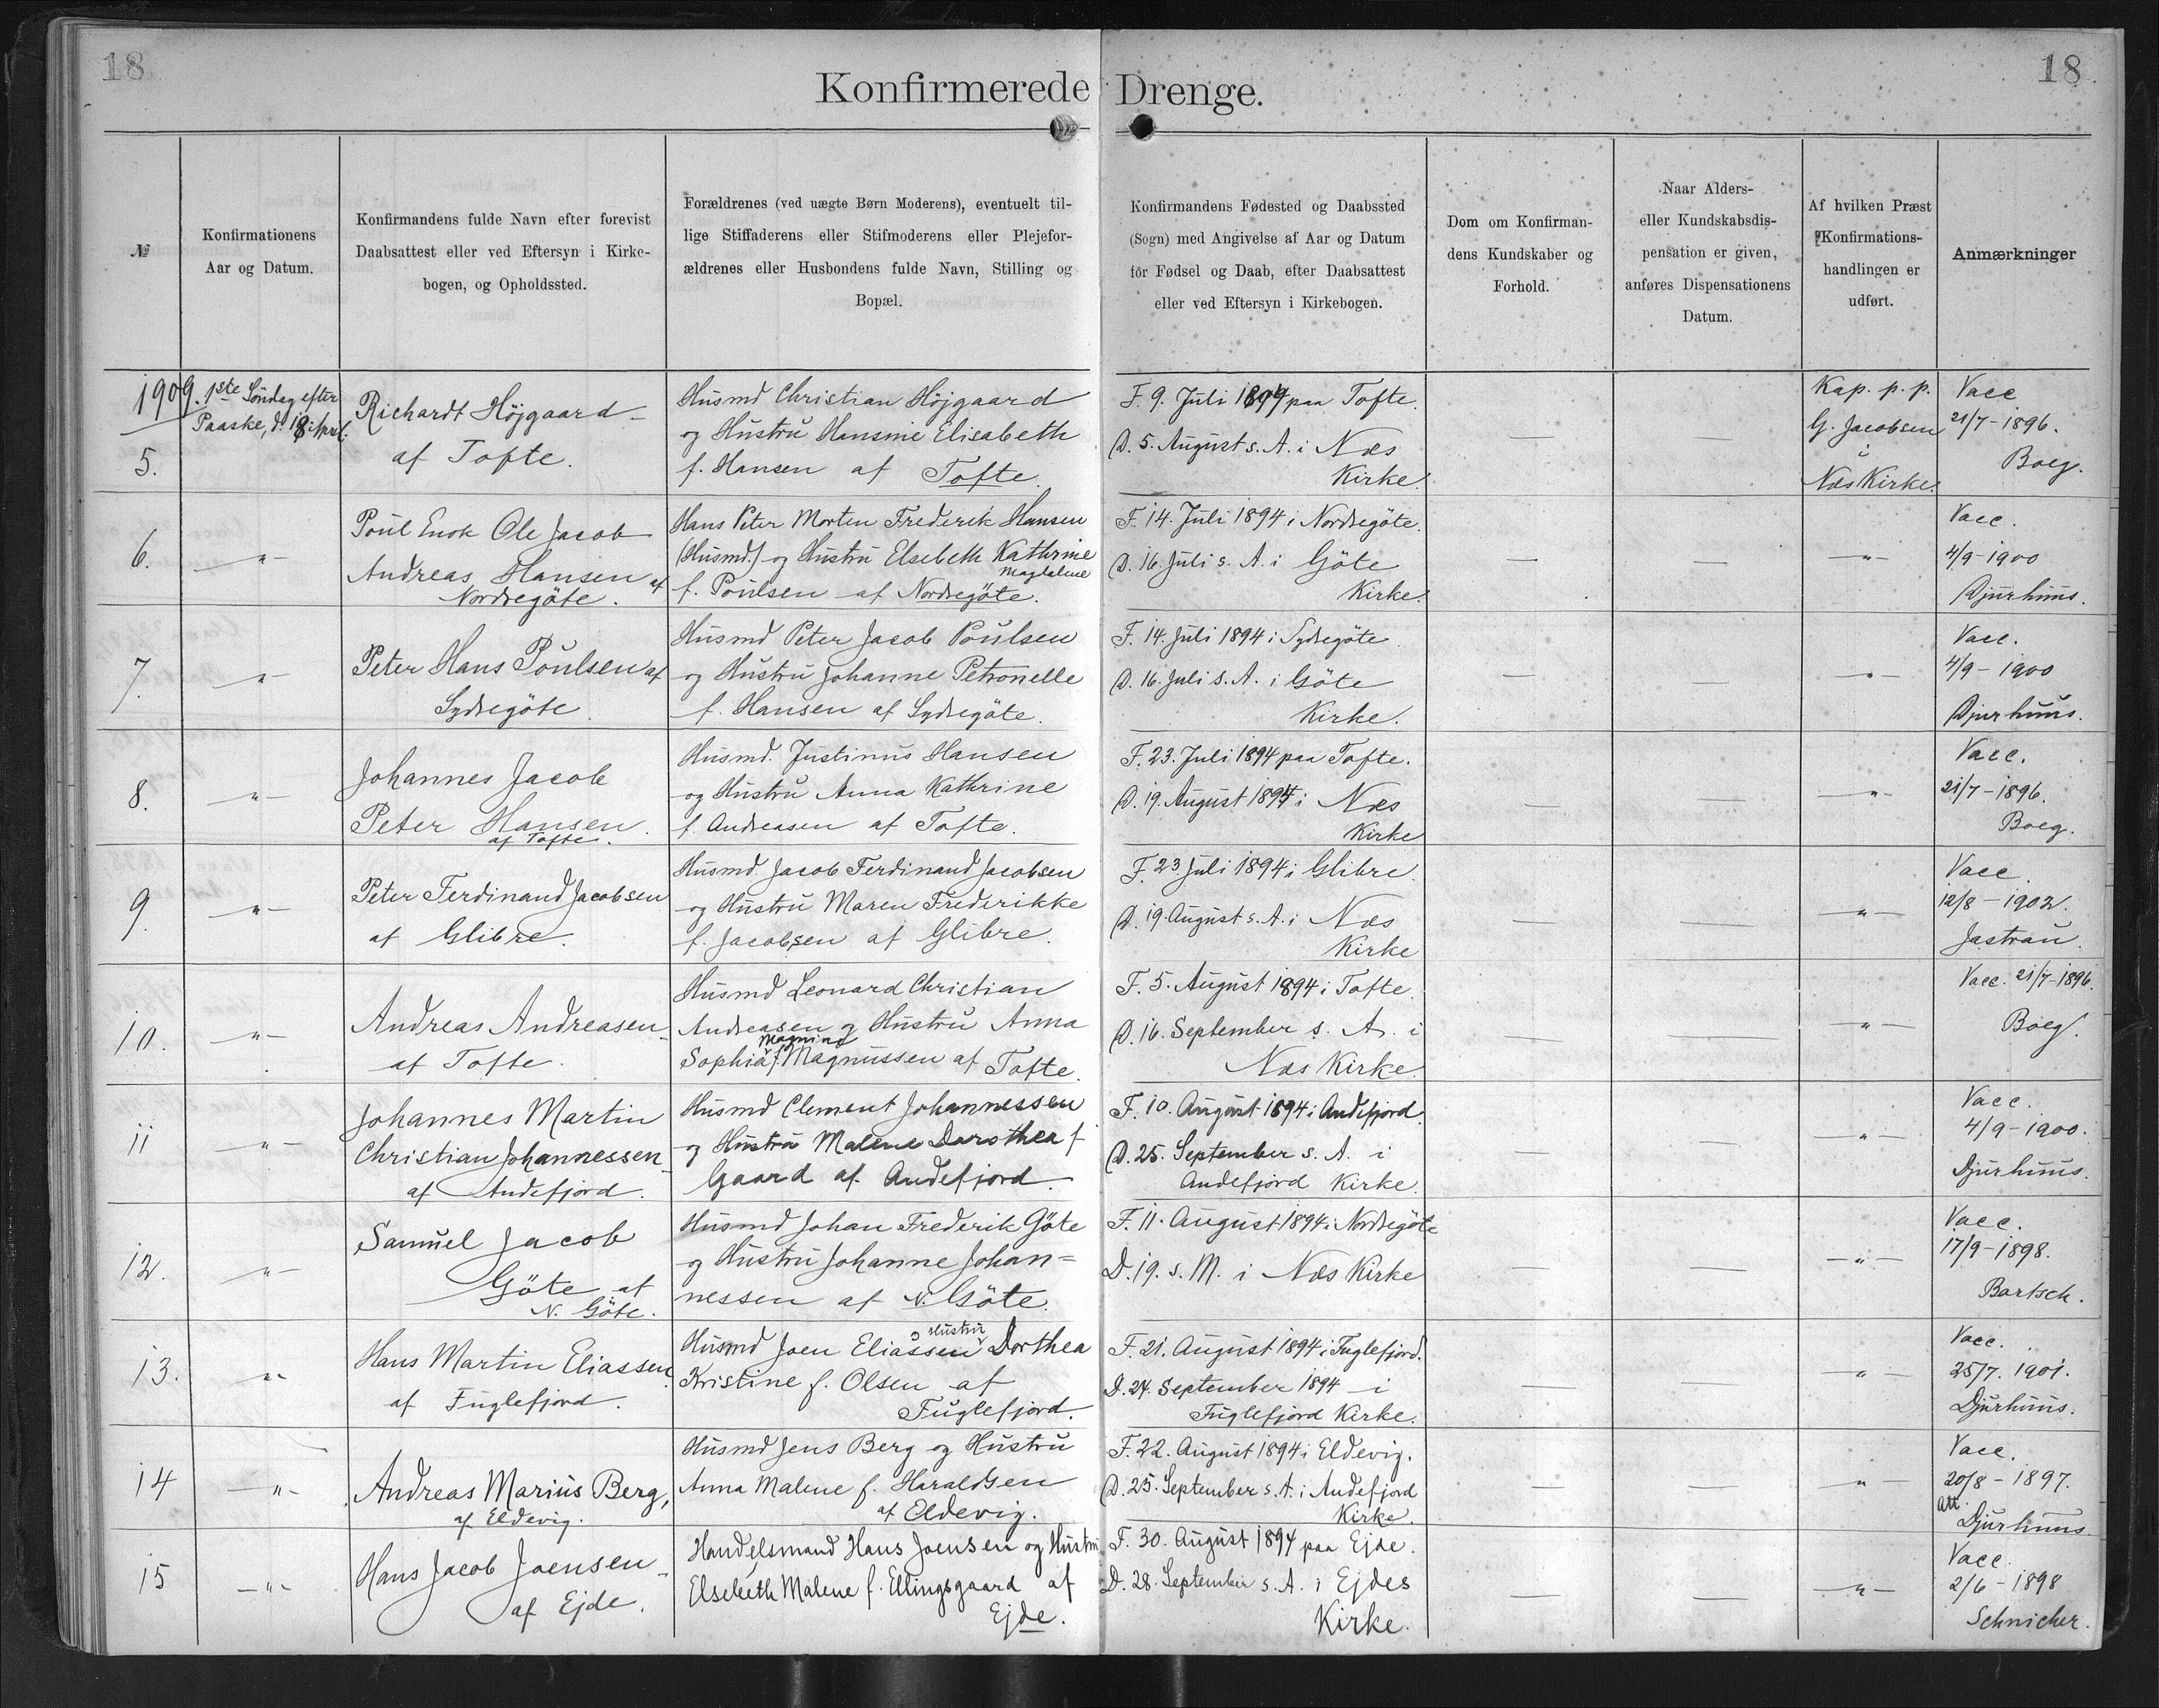 18
18
Konfirmerede Drenge.
№
Konfirmationens
Aar og Datum.
Konfirmandens fulde Navn efter forevist
Daabsattest eller ved Eftersyn i Kirke-
bogen, og Opholdssted.
Forældrenes (ved uægte Børn Moderens), eventuelt til-
lige Stiffaderens eller Stifmoderens eller Plejefor-
ældrenes eller Husbondens fulde Navn, Stilling og
Bopæl.
Konfirmandens Fødested og Daabssted
(Sogn) med Angivelse af Aar og Datum
for Fødsel og Daab, efter Daabsattest
eller ved Eftersyn i Kirkebogen.
Dom om Konfirman-
dens Kundskaber og
Forhold.
Naar Alders-
eller Kundskabsdis-
pensation er given,
anføres Dispensationens
Datum.
Af hvilken Præst
Konfirmations-
handlingen er
udført.
Anmærkninger
1909.
5.
1ste Søndag efter
Paaske, d. 18. April.
Richardt Højgaard
af Tofte.
Husmd Christian Højgaard
og Hustru Hansine Elisabeth
f. Hansen af Tofte.
F. 9. Juli 1894 paa Tofte.
D. 5. August s. A. i Næs
Kirke.
—
—
Kap. p. p.
G. Jacobsen
i
Næs Kirke.
Vacc
21/7-1896.
Boeg.
6.
—"—
Poul Enok Ole Jacob
Andreas Hansen af
Nordregöte.
Hans Peter Morten Frederik Hansen
(Husmd.) og Hustru Elsebeth Kathrine
Magdalene
f. Poulsen af Nordregöte.
F. 14. Juli 1894 i Nordregöte.
D. 16. Juli s. A. i Göte
Kirke.
—
—
—"—
Vacc.
4/9-1900
Djurhuus.
7.
—"—
Peter Hans Poulsen af
Sydregöte.
Husmd Peter Jacob Poulsen
og Hustru Johanne Petronelle
f. Hansen af Sydregöte.
F. 14. Juli 1894 i Sydregöte
D. 16. Juli s. A. i Göte
Kirke.
—
—
—"—
Vacc.
4/9-1900
Djurhuus.
8.
—"—
Johannes Jacob
Peter Hansen.
af Tofte.
Husmd. Justinus Hansen
og Hustru Anna Kathrine
f. Andreasen af Tofte.
F. 23. Juli 1894 paa Tofte.
D. 19. August 1894 i Næs
Kirke
—
—
—"—
Vacc.
21/7-1896.
Boeg.
9.
—"—
Peter Ferdinand Jacobsen
af Glibre.
Husmd. Jacob Ferdinand Jacobsen
og Hustru Maren Frederikke
f. Jacobsen af Glibre.
F. 23. Juli 1894 i Glibre.
D. 19. August s. A. i Næs
Kirke
—
—
—"—
Vacc.
12/8-1902.
Jastrau.
10.
—"—
Andreas Andreasen
af Tofte.
Husmd Leonard Christian
Andreasen og Hustru Anna
Sophia f. Magnussen af Tofte.
F. 5. August 1894 i Tofte.
D. 16. September s. A. i
Næs Kirke.
—
—
—"—
Vacc. 21/7-1896.
Boeg.
11
—"—
Johannes Martin
Christian Johannessen
af Andefjord.
Husmd Clement Johannessen
og Hustru Malene Dorothea f.
Gaard af Andefjord.
F. 10. August 1894 i Andefjord.
D. 25. September s. A. i
Andefjord Kirke.
—
—
—"—
Vacc.
4/9-1900.
Djurhuus.
12.
—"—
Samuel Jacob
Göte af
N. Göte.
Husmd Johan Frederik Göte
og Hustru Johanne Johan=
nessen af N. Göte.
F. 11. August 1894 i Nordregöte
D. 19. s. M. i Næs Kirke
—
—
—"—
Vacc.
17/9-1898.
Bartsch.
13.
—"—
Hans Martin Eliassen
af Fuglefjord.
Hustru
Husmd Joen Eliassen Dorthea
Kristine f. Olsen af
Fuglefjord.
F. 21. August 1894 i Fuglefjord.
D. 24. September 1894 i
Fuglefjord Kirke.
—
—
—"—
Vacc.
25/7. 1901.
Djurhuus.
14
—"—
Andreas Marius Berg,
af Eldevig.
Husmd Jens Berg og Hustru
Anna Malene f. Haraldsen
af Eldevig.
F. 22. August 1894 i Eldevig.
D. 25. September s. A. i Andefjord
Kirke.
—
—
—"—
Vacc.
20/8-1897.
att.
Djurhuus.
15
—"—
Hans Jacob Joensen
af Ejde.
Handelsmand Hans Joensen og Hustru
Elsebeth Malene f. Ellingsgaard af
Ejde.
F. 30. August 1894 paa Ejde.
D. 28. September s. A. i Ejdes
Kirke.
—
—
—"—
Vacc.
2/6-1898